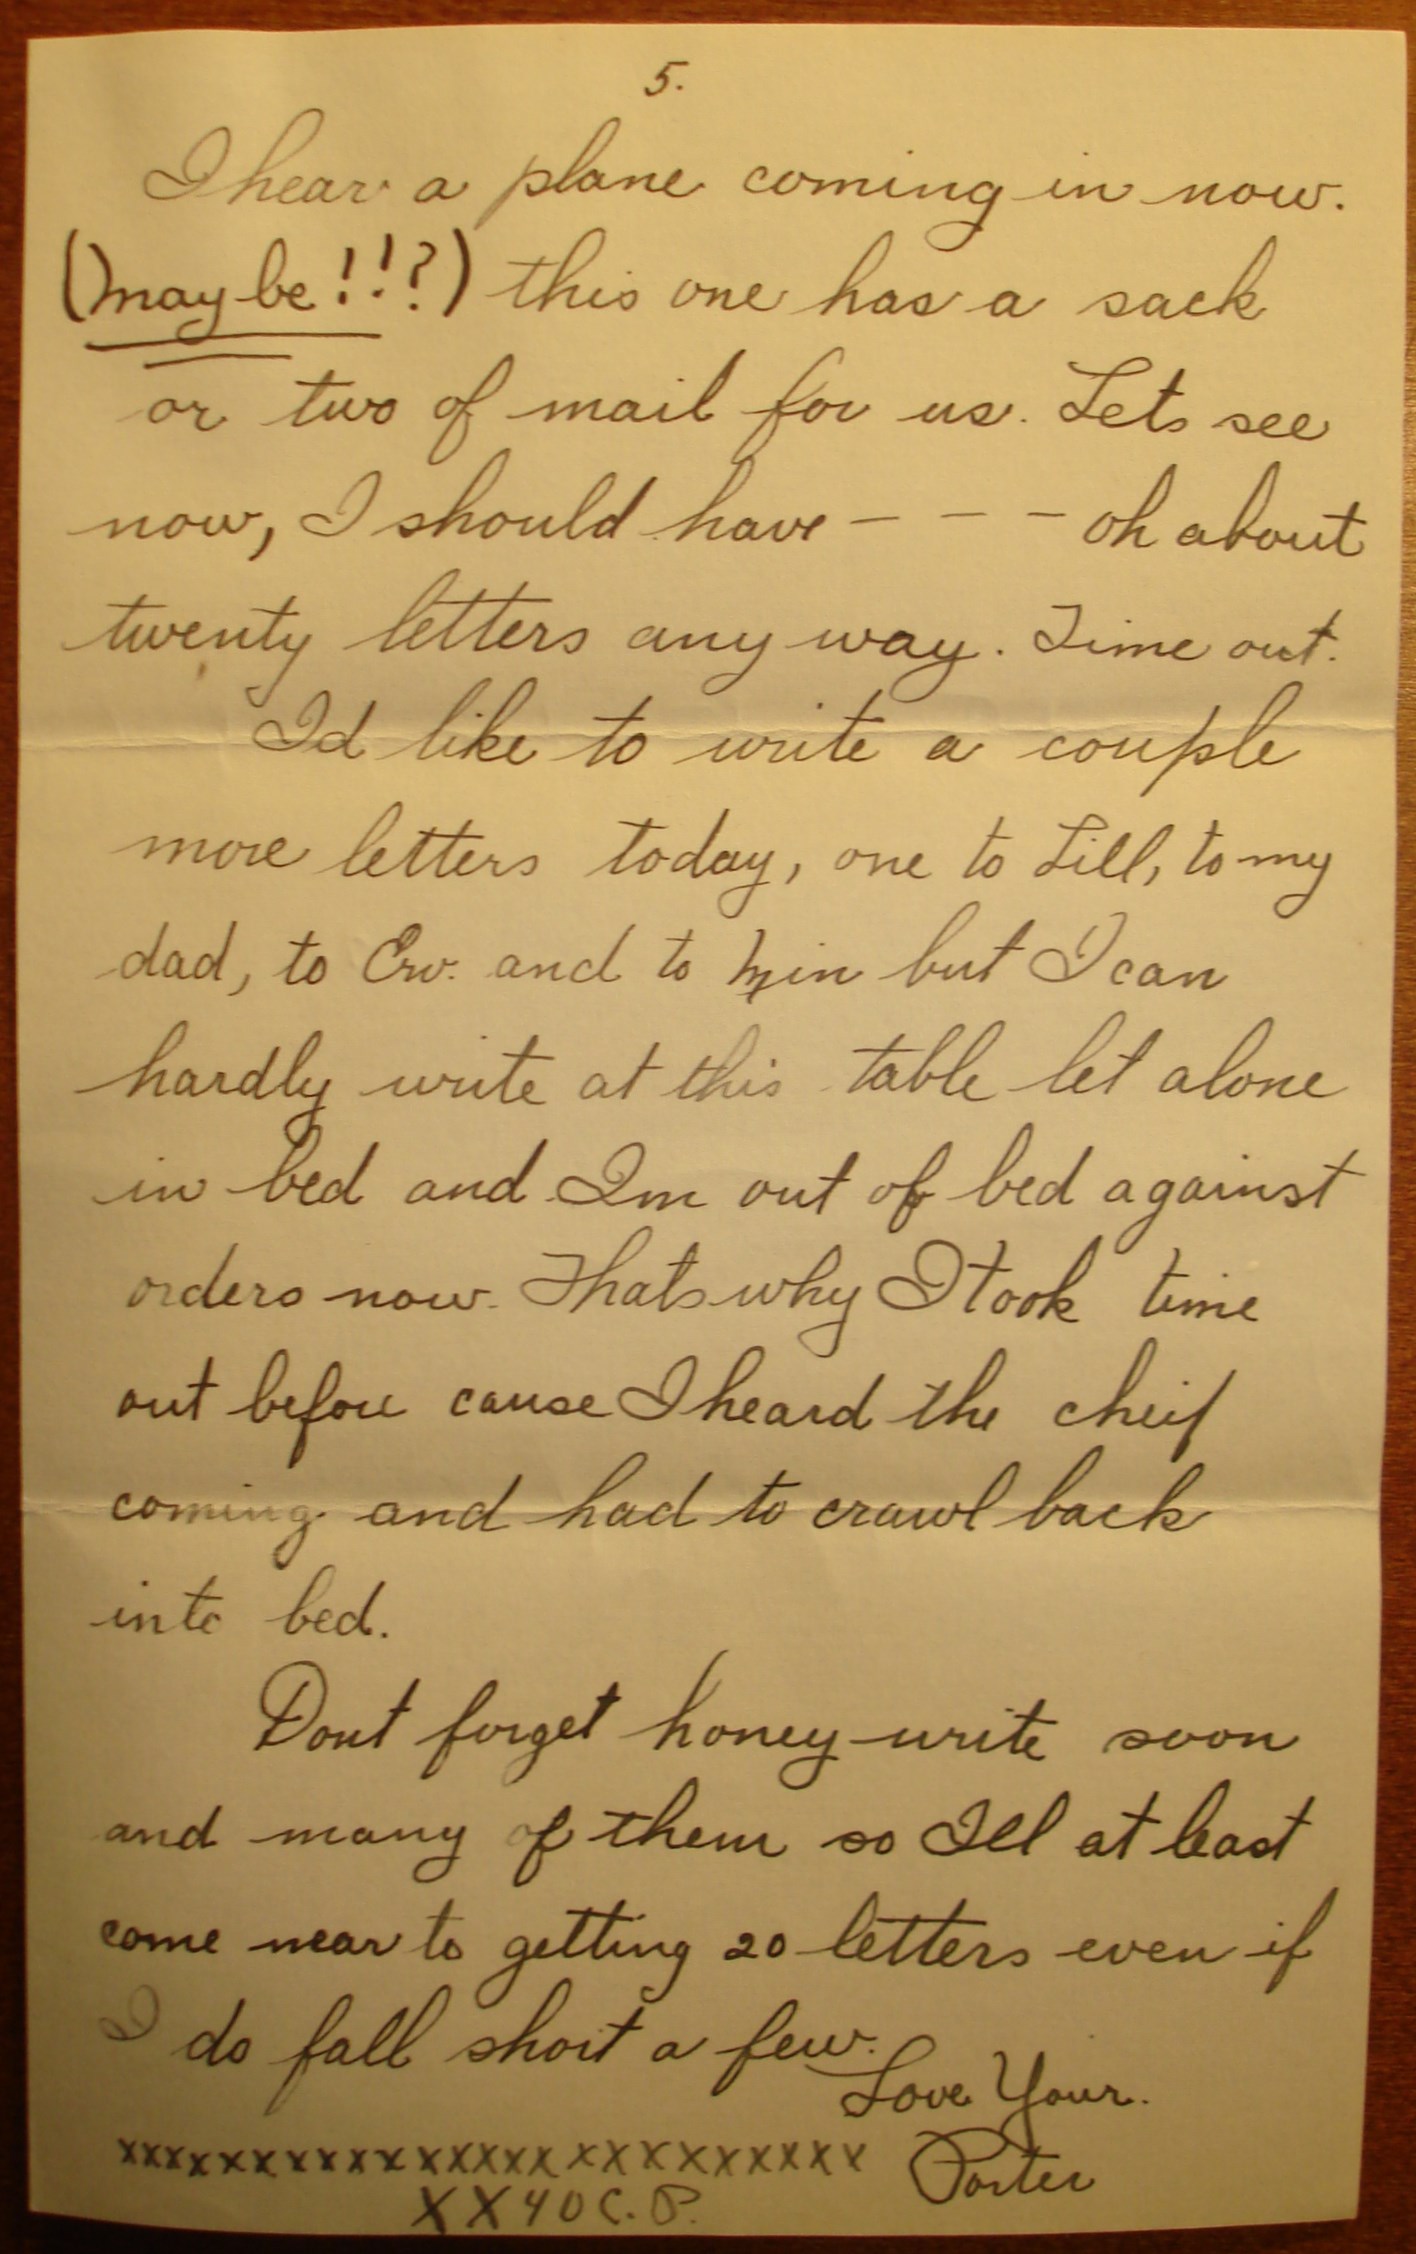 5.
I hear a plane coming in now.
(maybe!!?) this one has a sack
or two of mail for us. Lets see
now, I should have - - - oh about
twenty letters any way. Time out.
Id like to write a couple
more letters today, one to Lill, to my
dad, to Erv. and to Min but I can
hardly write at this table let alone
in bed and Im out of bed against
orders now. Thats why I took time
out before cause I heard the cheif
coming and had to crawl back
into bed.
Dont forget honey write soon
and many of them so Ill at least
come near to getting 20 letters even if
I do fall short a few.
Love Your.
xxxxxxxxxxxxxxxxxxxxxxxxx Porter
XX40C.P.